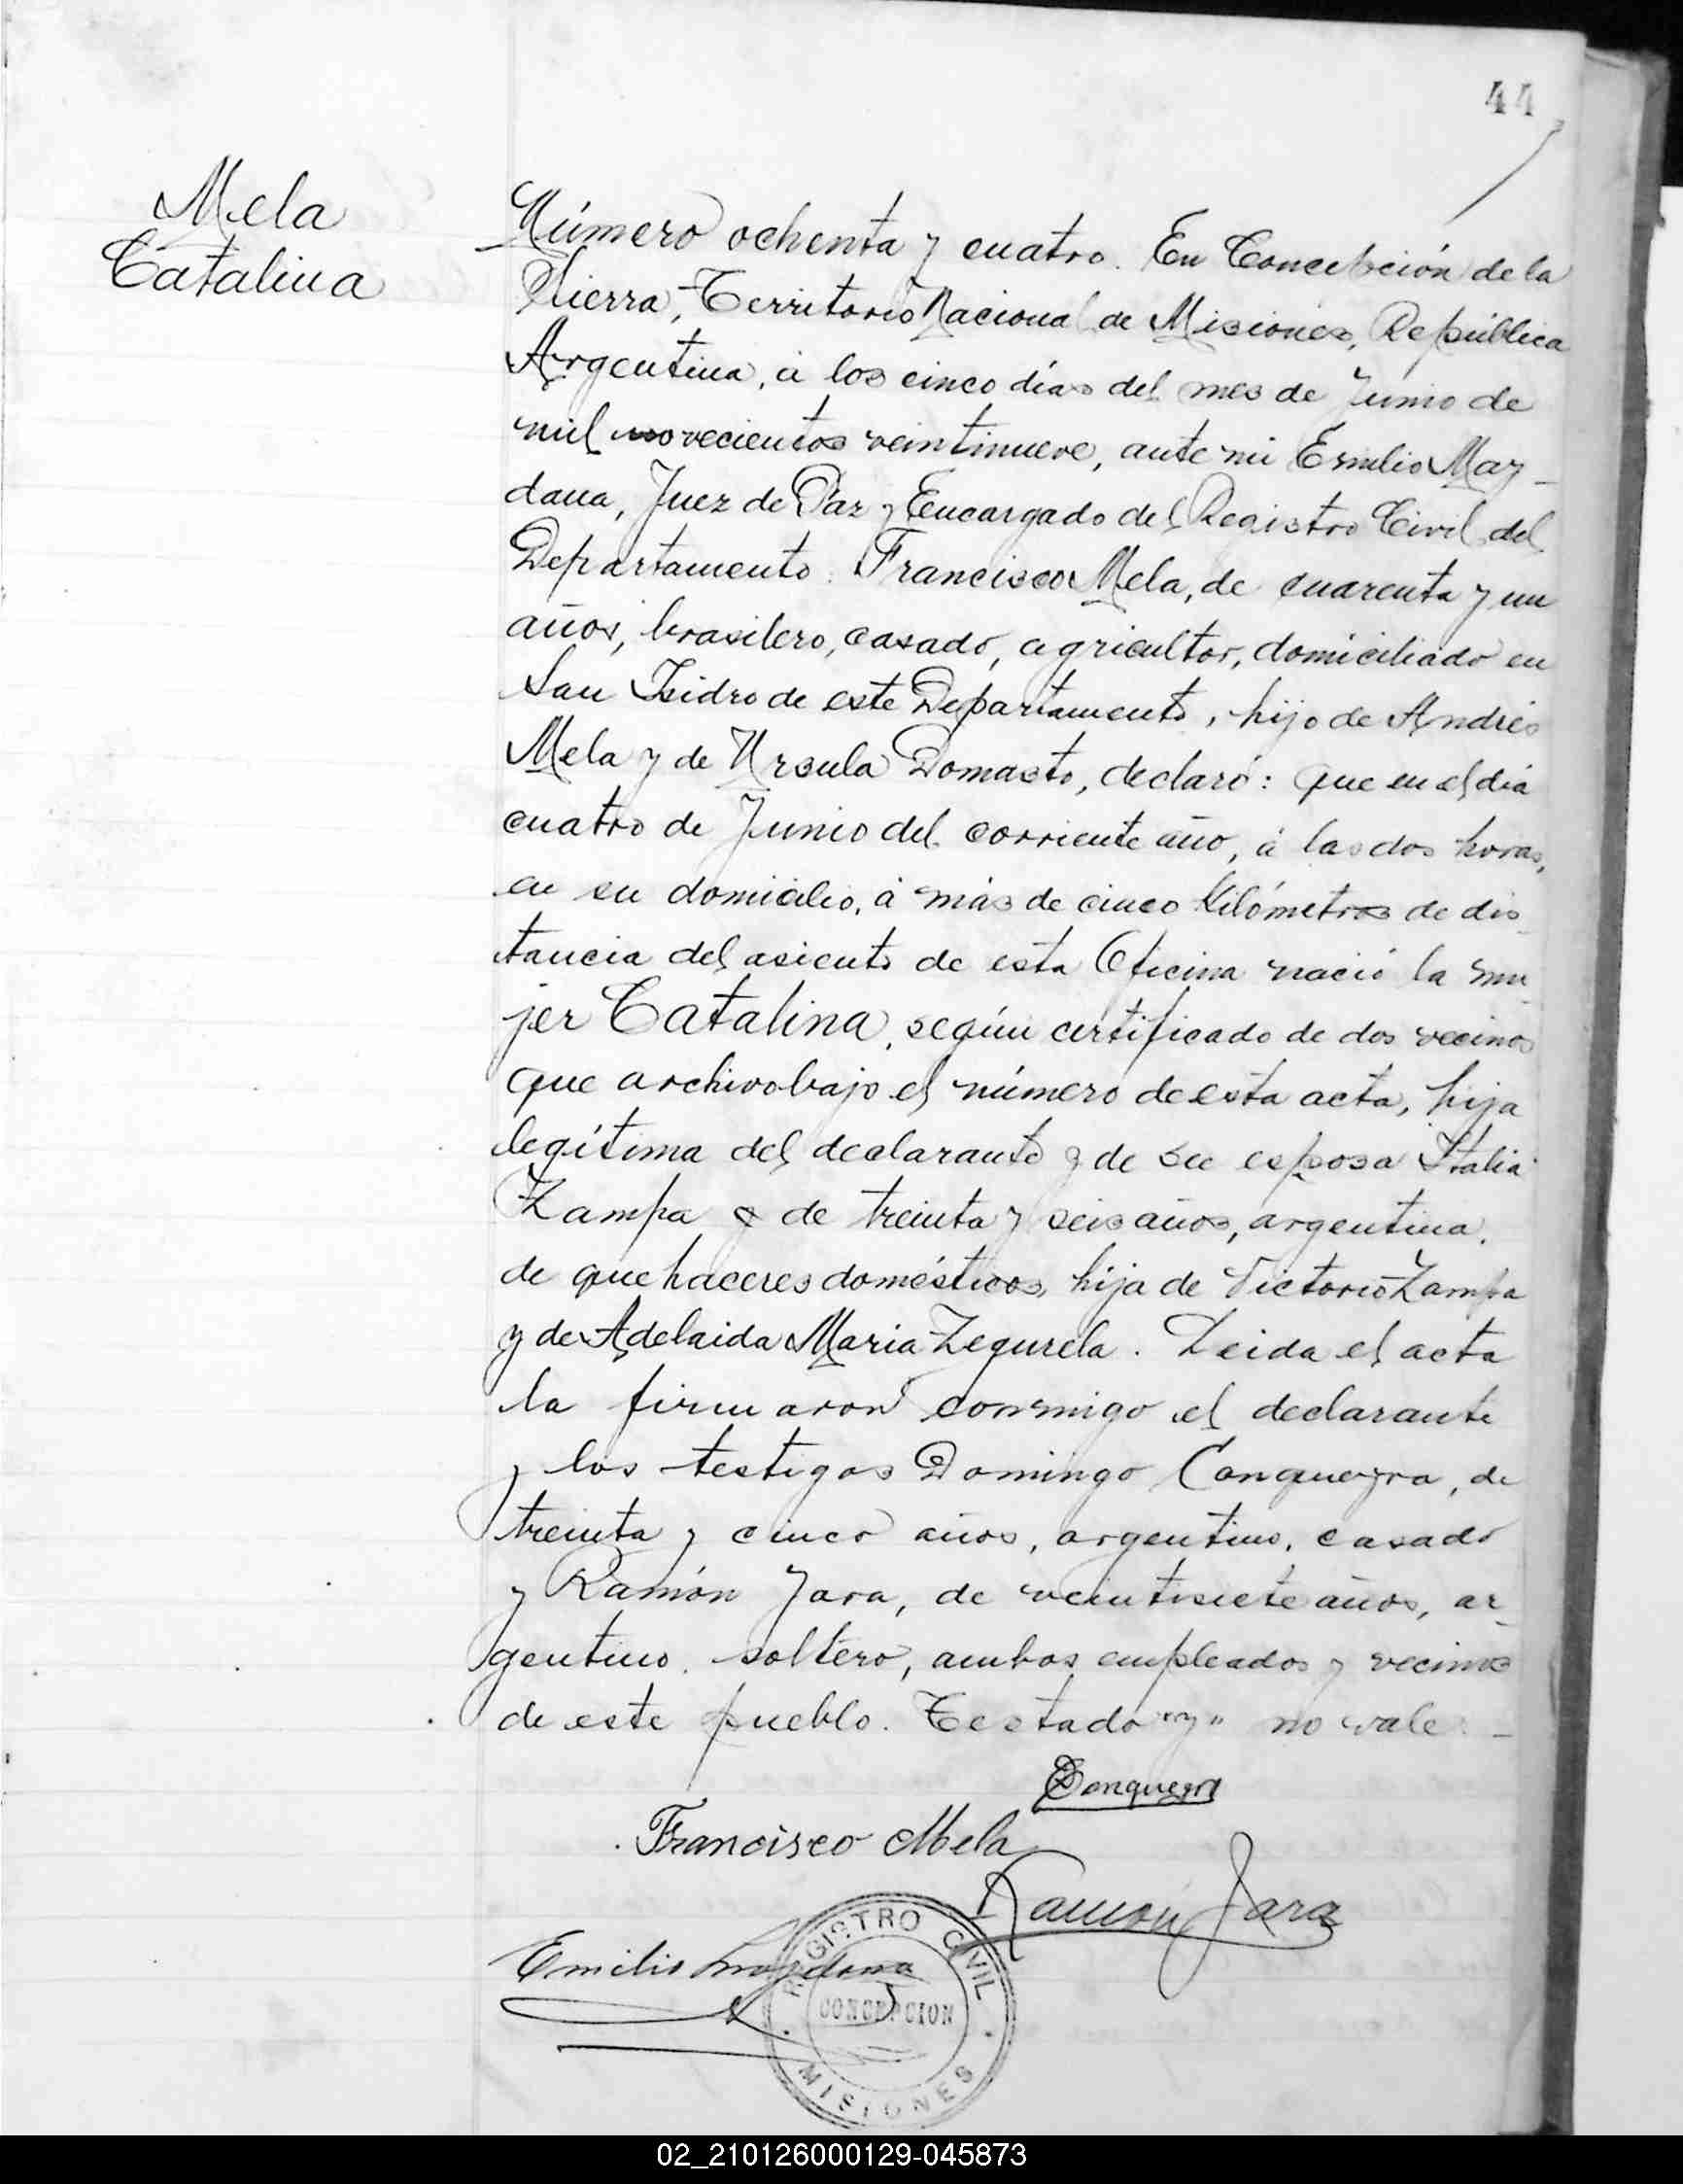 44
Mela
Catalina
Número ochenta y cuatro. En Concepción de la
Sierra, Territorio Nacional de Misiones, República
Argentina, á los cinco días del mes de Junio de
mil novecientos veintinueve, ante mi Emilio May-
dana, Juez de Paz y Encargado del Registro Civil del
Departamento: Francisco Mela, de cuarenta y un
años, brasilero, casado, agricultor, domiciliado en
San Isidro de este Departamento, hijo de Andrés
Mela y de Ursula Domasto, declaró: que en el día
cuatro de Junio del corriente año, á las dos horas,
en su domicilio, á más de cinco kilómetros de dis-
tancia del asiento de esta Oficina nació la mu-
jer Catalina, según certificado de dos vecinos
que archivo bajo el número de esta acta, hija
legítima del declarante y de su esposa Italia
Zampa y de treinta y seis años, argentina,
de quehaceres domésticos, hija de Victorio Zampa
y de Adelaida Maria Zegurela. Leida el acta
la firmaron conmigo el declarante
y los testigos Domingo Conqueyra, de
treinta y cinco años, argentino, casado
y Ramón Jara, de veintisiete años, ar-
gentino, soltero, ambos empleados y vecinos
de este pueblo. Testado "y" no vale. -
DConqueyra
Francisco Mela
Ramón Jara
Emilio Maydana
REGISTRO CIVIL
CONCEPCION
MISIONES
02_210126000129-045873